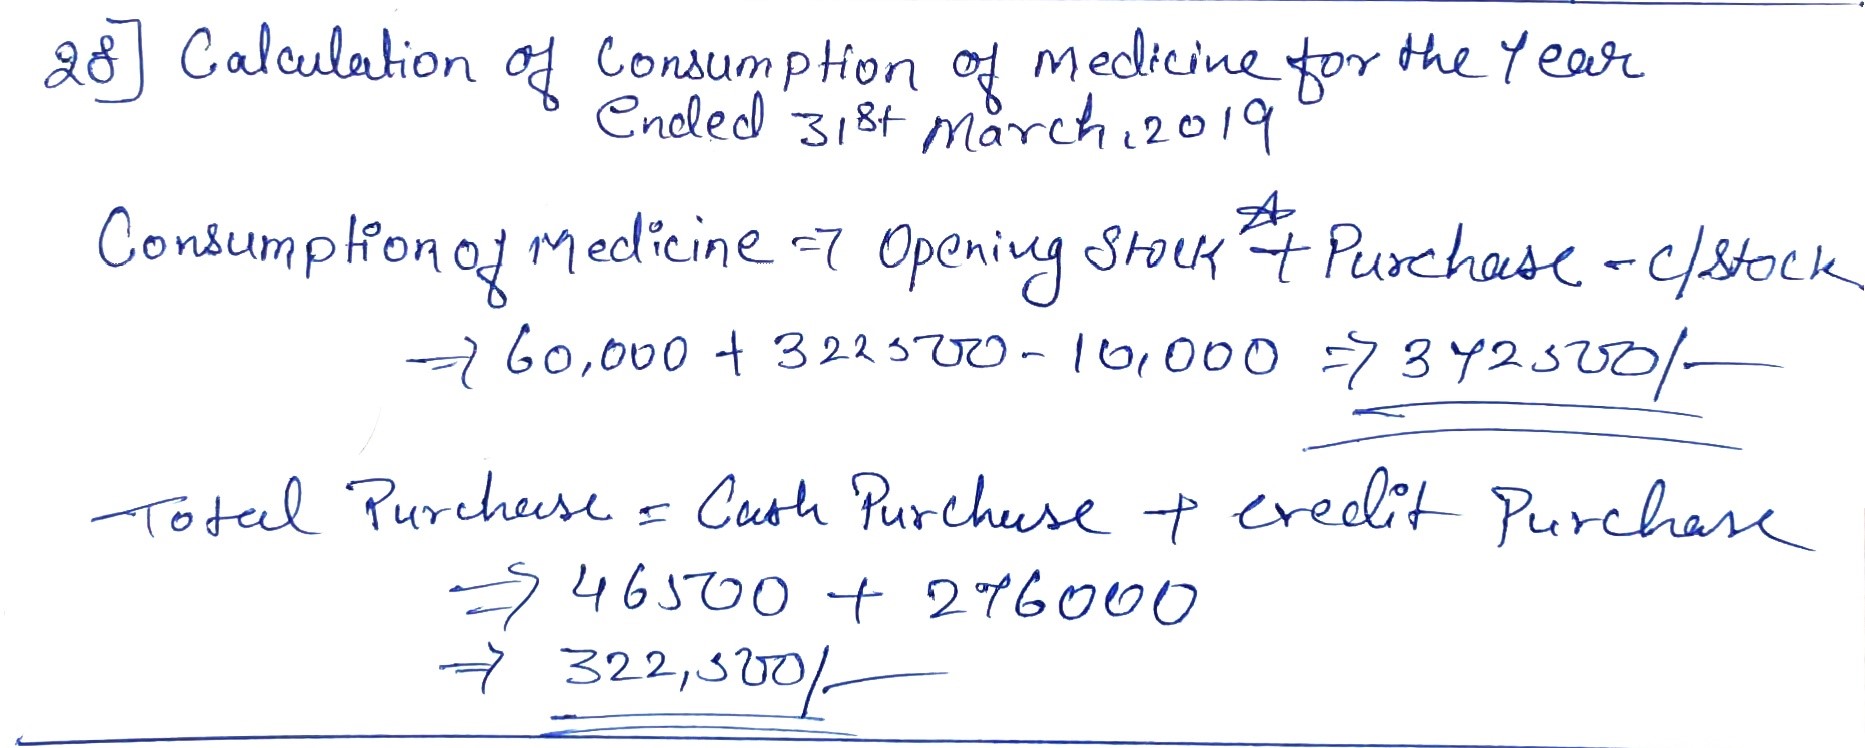 28] Calculation of Consumption of Medicine for the Year
Ended 31st March, 2019
Consumption of Medicine => Opening Stock + Purchase - C/Stock
=> 60,000 + 322500 - 10,000 => 372500/-
Total Purchase = Cash Purchase + credit Purchase
=> 46500 + 276000
=> 322,500/-